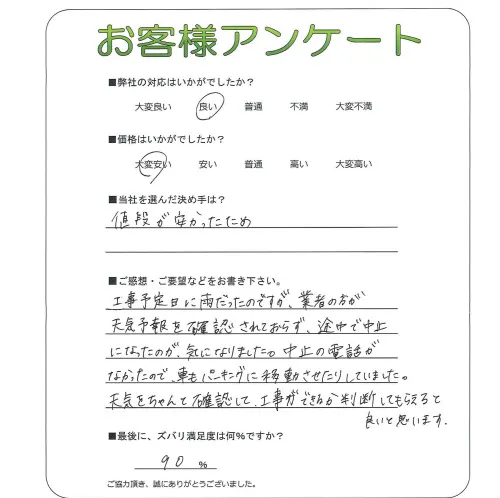 お客様アンケート
■弊社の対応はいかがでしたか？
大変良い 良い 普通 不満 大変不満
■価格はいかがでしたか？
大変安い 安い 普通 高い 大変高い
■当社を選んだ決め手は？
値段が安かったため
■ご感想・ご要望などをお書き下さい。
工事予定日に雨だったのですが、業者の方が
天気予報を確認されておらず、途中で中止
になったのが、気になりました。中止の電話が
なかったので、車もパーキングに移動させたりしていました。
天気をちゃんと確認して、工事ができるか判断してもらえると
良いと思います。
■最後に、ズバリ満足度は何％ですか？
90 ％
ご協力頂き、誠にありがとうございました。